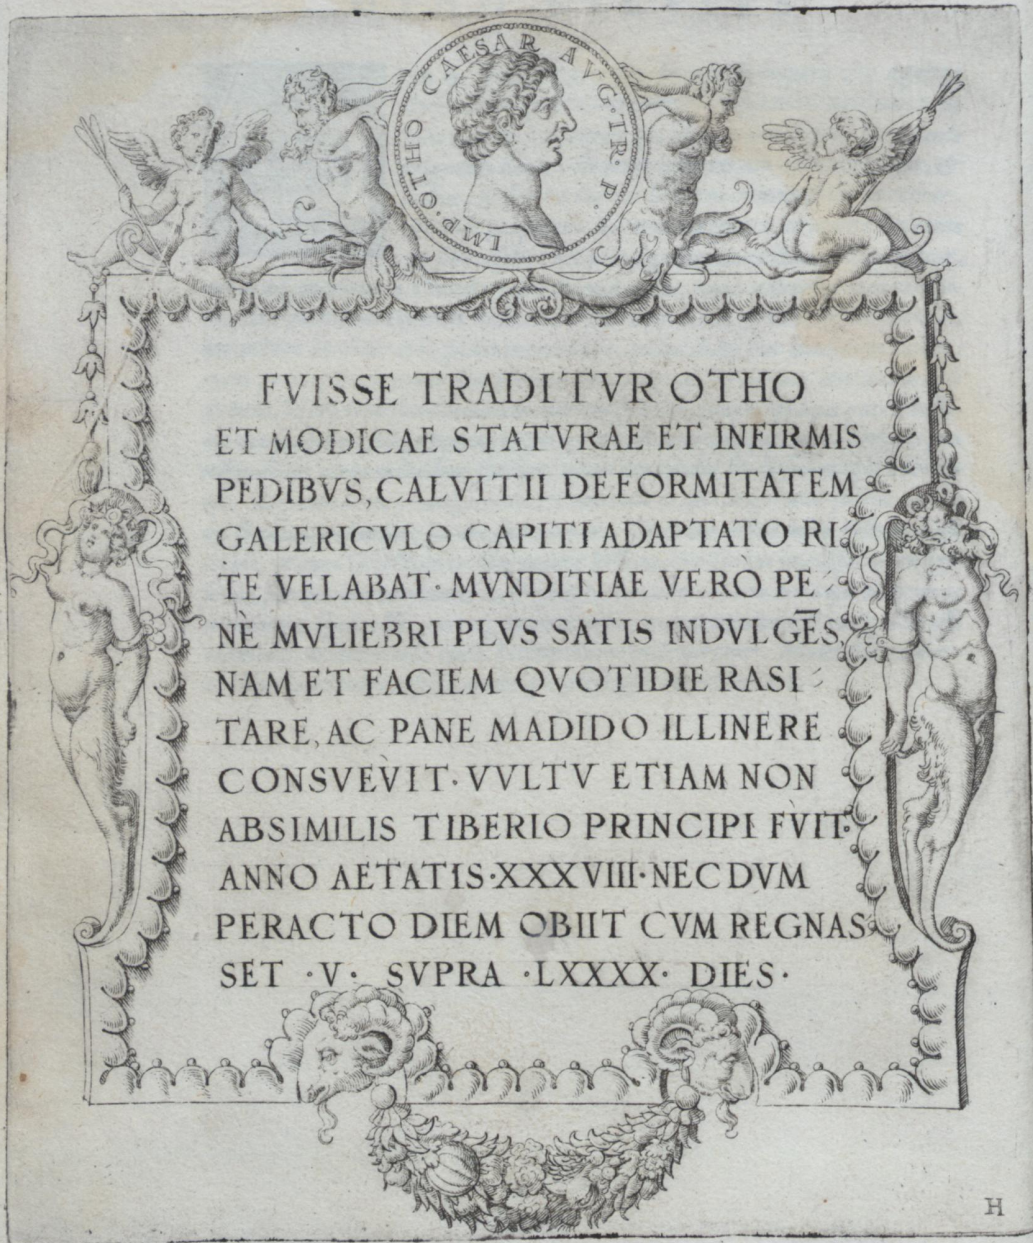 IMP· OTHO CAESAR AVG·TR·P·
FVISSE TRADITVR OTHO
ET MODICAE STATVRAE ET INFIRMIS
PEDIBVS, CALVITII DEFORMITATEM
GALERICVLO CAPITI ADAPTATO RI
TE VELABAT· MVNDITIAE VERÒ PE-
NÈ MVLIEBRI PLVS SATIS INDVLGĒS,
NAM ET FACIEM QVOTIDIE RASI-
TARE, AC PANE MADIDO ILLINERE
CONSVEVIT· VVLTV ETIAM NON
ABSIMILIS TIBERIO PRINCIPI FVIT·
ANNO AETATIS·XXXVIII·NECDVM
PERACTO DIEM OBIIT CVM REGNAS-
SET ·V· SVPRA ·LXXXX· DIES·
H